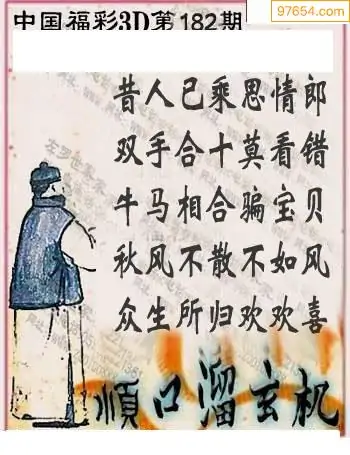 中国福彩3D第182期
97654.com
昔人已乘思情郎
双手合十莫看错
牛马相合骗宝贝
秋风不散不如风
众生所归欢欢喜
順口溜玄机